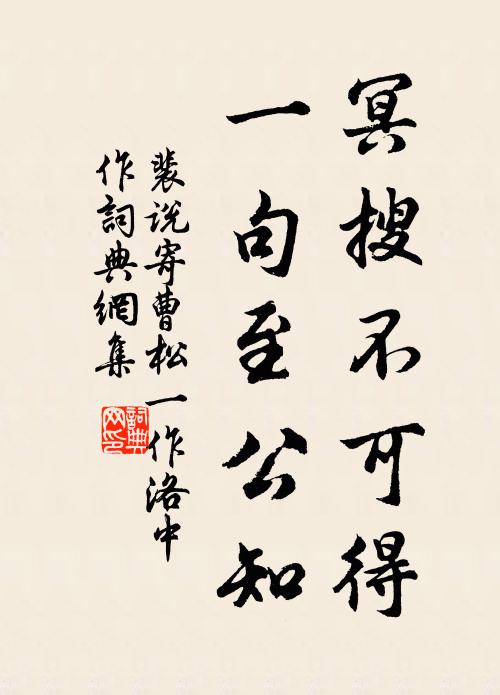 冥搜不可得
一句至公知
裴说寄曹松一作洛中
作詞典網集
詞典
网印